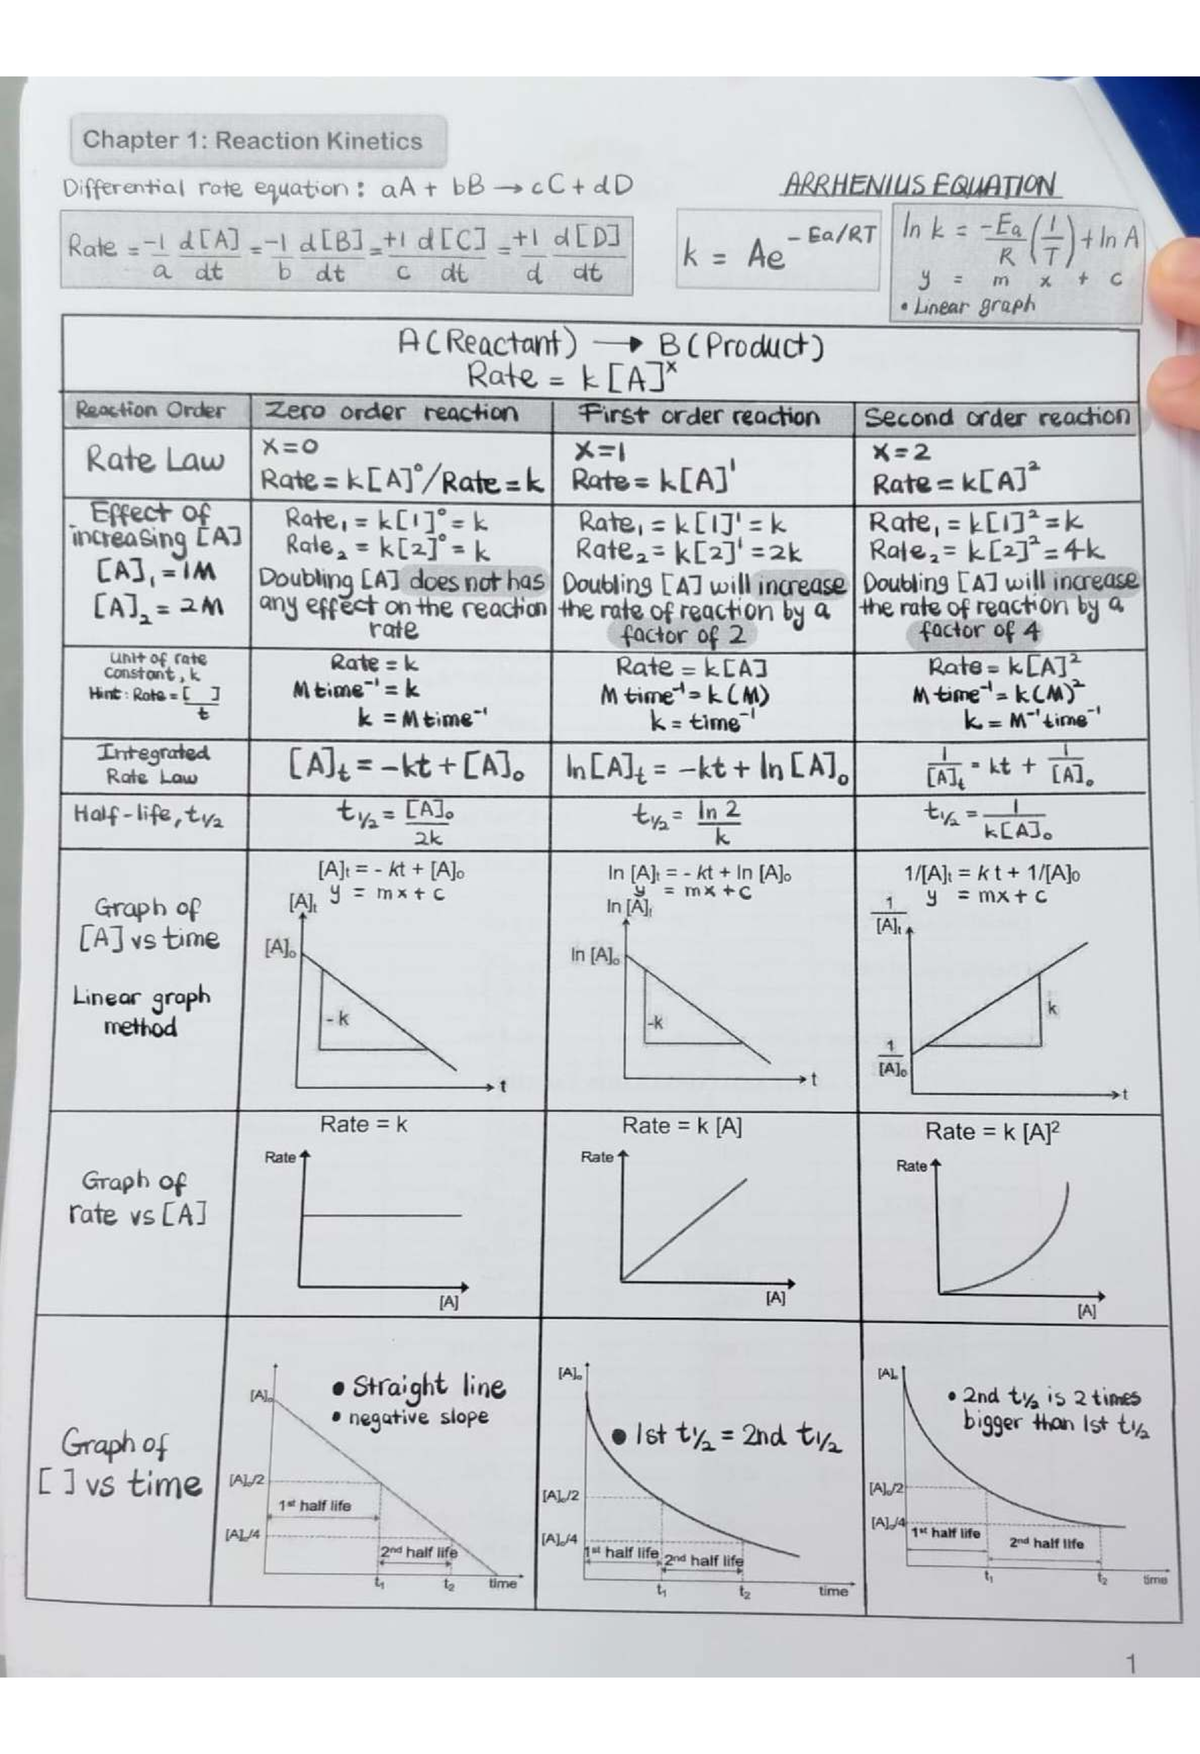 Chapter 1: Reaction Kinetics
Differential rate equation: aA + bB → cC + dD
Rate = -1/a d[A]/dt = -1/b d[B]/dt = +1/c d[C]/dt = +1/d d[D]/dt
ARRHENIUS EQUATION
k = Ae^-Ea/RT
ln k = -Ea/R (1/T) + ln A
y = m x + c
• Linear graph
A (Reactant) → B (Product)
Rate = k[A]^x
Reaction Order
Zero order reaction
First order reaction
Second order reaction
Rate Law
x=0
Rate = k[A]⁰/Rate = k
x=1
Rate = k[A]¹
x=2
Rate = k[A]²
Effect of
increasing [A]
[A]₁ = 1M
[A]₂ = 2M
Rate₁ = k[1]⁰ = k
Rate₂ = k[2]⁰ = k
Doubling [A] does not has
any effect on the reaction
rate
Rate₁ = k[1]¹ = k
Rate₂ = k[2]¹ = 2k
Doubling [A] will increase
the rate of reaction by a
factor of 2
Rate₁ = k[1]² = k
Rate₂ = k[2]² = 4k
Doubling [A] will increase
the rate of reaction by a
factor of 4
Unit of rate
constant, k
Hint: Rate = [ ]/t
Rate = k
M time⁻¹ = k
k = M time⁻¹
Rate = k[A]
M time⁻¹ = k(M)
k = time⁻¹
Rate = k[A]²
M time⁻¹ = k(M)²
k = M⁻¹time⁻¹
Integrated
Rate Law
[A]t = -kt + [A]₀
ln[A]t = -kt + ln[A]₀
1/[A]t = kt + 1/[A]₀
Half-life, t1/2
t1/2 = [A]₀/2k
t1/2 = ln 2/k
t1/2 = 1/k[A]₀
Graph of
[A] vs time
Linear graph
method
[A]t = - kt + [A]₀
y = mx + c
[A]t
[A]₀
-k
t
ln [A]t = - kt + ln [A]₀
y = mx + c
ln [A]t
ln [A]₀
-k
t
1/[A]t = k t + 1/[A]₀
y = mx + c
1/[A]t
1/[A]₀
k
t
Graph of
rate vs [A]
Rate = k
Rate
[A]
Rate = k [A]
Rate
[A]
Rate = k [A]²
Rate
[A]
Graph of
[ ] vs time
[A]₀
• Straight line
• negative slope
[A]₀/2
1st half life
[A]₀/4
2nd half life
t₁
t₂
time
[A]₀
• 1st t1/2 = 2nd t1/2
[A]₀/2
[A]₀/4
1st half life
2nd half life
t₁
t₂
time
[A]₀
• 2nd t1/2 is 2 times
bigger than 1st t1/2
[A]₀/2
[A]₀/4
1st half life
2nd half life
t₁
t₂
time
1